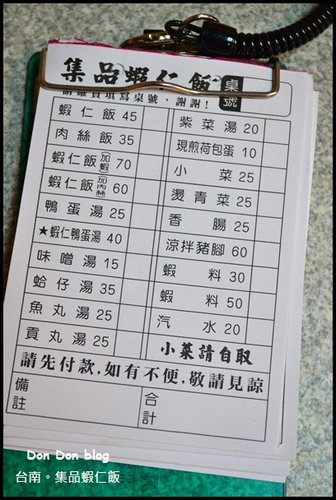 集品蝦仁飯 桌號
請確實填寫桌號，謝謝！
蝦仁飯 45
肉絲飯 35
蝦仁飯 加蝦 70
蝦仁飯 加肉絲 60
鴨蛋湯 25
★蝦仁鴨蛋湯 40
味噌湯 15
蛤仔湯 35
魚丸湯 25
貢丸湯 25
紫菜湯 20
現煎荷包蛋 10
小菜 25
燙青菜 25
香腸 25
涼拌豬腳 60
蝦料 30
蝦料 50
汽水 20
小菜請自取
請先付款，如有不便，敬請見諒
備註
合計
Don Don blog
台南。集品蝦仁飯